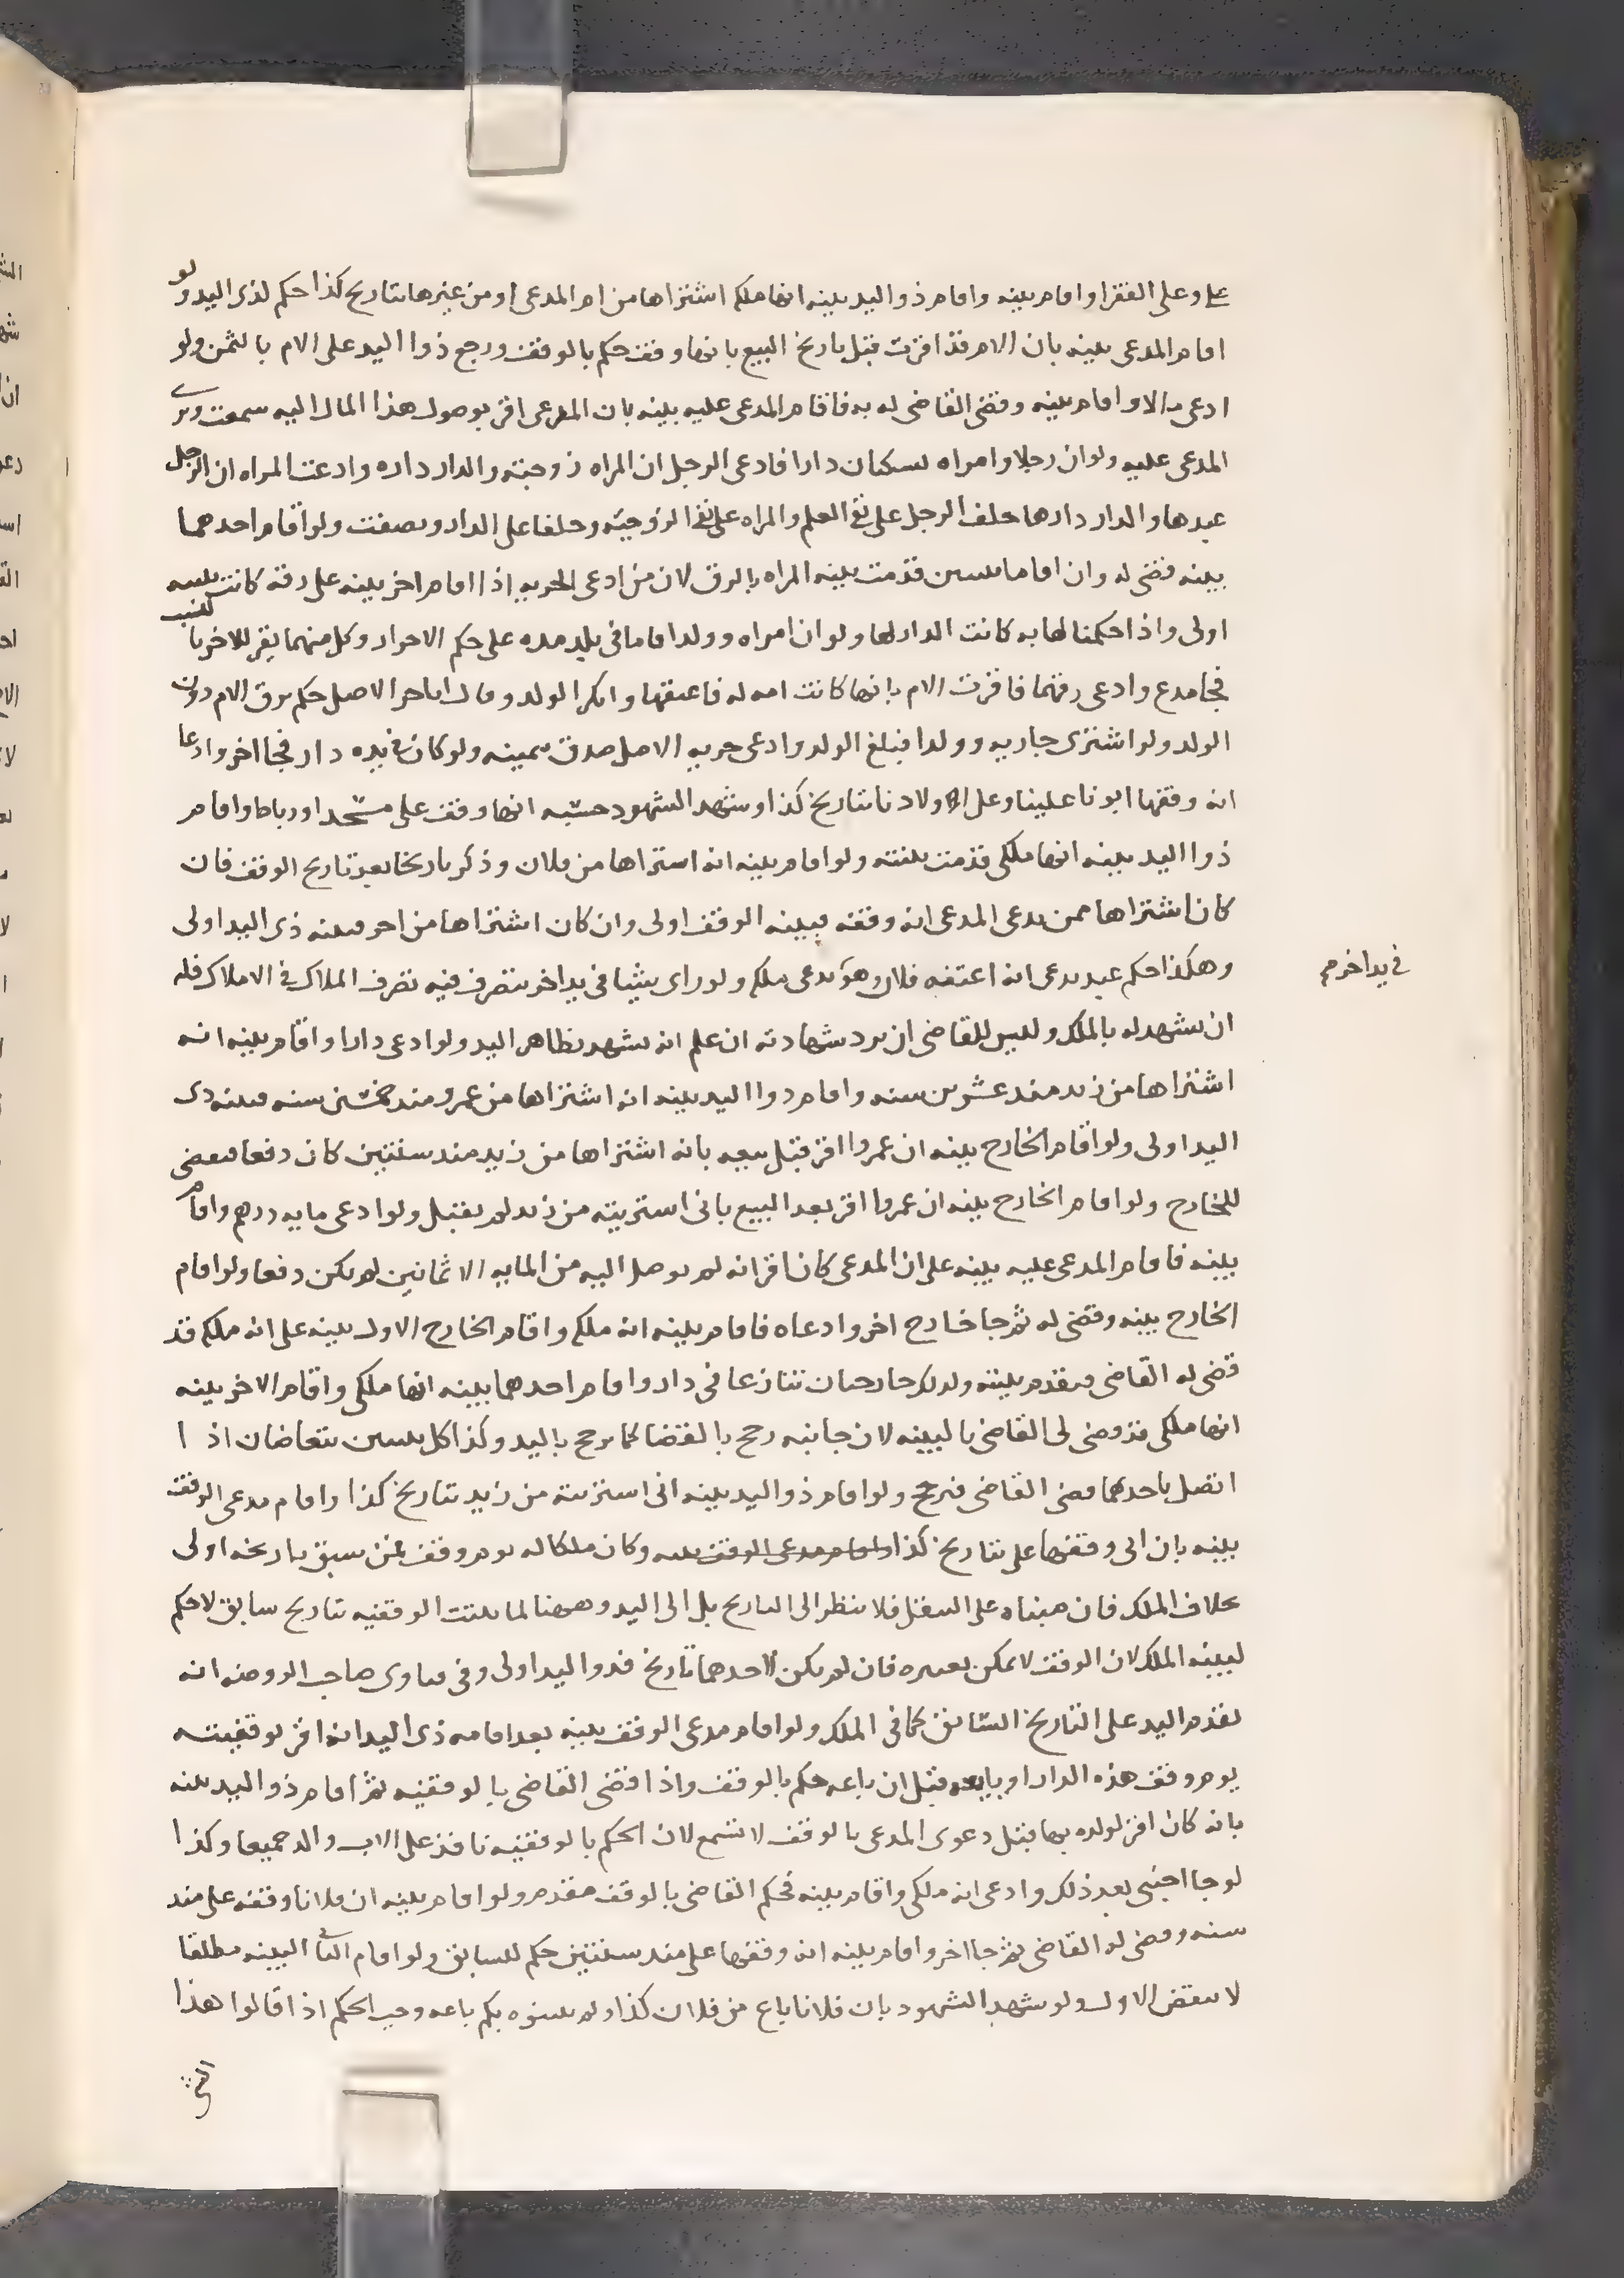 علي وعلى الفقرا واقام بينه واقام ذو اليد بينه انها ملكه اشتراها من ام المدعى او من غيرها بتاريخ كذا حكم لذى اليد ولو
اقام المدعى بينه بان الام قد اقرت قبل تاريخ البيع بانها وقف حكم بالوقف ورجع ذوا اليد على الام بالثمن ولو
ادعى مالا واقام بينه وقضى القاضى له به فاقام المدعى عليه بينه بان المدعى اقر بوصول هذا المال اليه سمعت وبرى
المدعى عليه ولو ان رجلا وامراه يسكنان دارا فادعى الرجل ان المراه زوجته والدار داره وادعت المراه ان الرجل
عبدها والدار دارها حلف الرجل على نفى العلم والمراه على نفى الزوجيه وحلفا على الدار ونصفت ولو اقام احدهما
بينه قضى له وان اقاما بينتين قدمت بينه المراه بالرق لان من ادعى الحريه اذا اقام اخر بينه على رقه كانت بينته
اولى واذا حكمنا لها به كانت الدار لها ولو ان امراه وولدا اقاما فى بلد مده على حكم الاحرار وكل منهما يقر للاخر بالنسب
فجا مدع وادعى رقهما فاقرت الام بانها كانت امه له فاعتقها وانكر الولد وقال انا حر الاصل حكم برق الام دون
الولد ولو اشترى جاريه وولدا فبلغ الولد وادعى حريه الاصل صدق بيمينه ولو كان فى يده دار فجا اخر وادعا
انه وقفها ابونا علينا وعلى اولادنا بتاريخ كذا وشهد الشهود حسبه انها وقف على مسجد او رباط واقام
ذوا اليد بينه انها ملكى قدمت بينته ولو اقام بينه انه استراها من فلان وذكر تاريخا بعد تاريخ الوقف فان
كان اشتراها ممن يدعى المدعى انه وقفه فبينه الوقف اولى وان كان اشتراها من اخر فبينه ذى اليد اولى
وهكذا حكم عبد يدعى انه اعتقه فلان وهو يدعى ملكه ولو راى شيئا فى يد اخر يتصرف فيه تصرف الملاك فى الاملاك فله
فى يد اخر
ان يشهد له بالملك وليس للقاضى ان يرد شهادته ان علم انه يشهد بظاهر اليد ولو ادعى دارا واقام بينه انه
اشتراها من زيد منذ عشرين سنه واقام دوا اليد بينه انه اشتراها من عمرو منذ خمسين سنه فبينه ذى
اليد اولى ولو اقام الخارج بينه ان عمروا اقر قبل بيعه بانه اشتراها من زيد منذ سنتين كان دفعا فيقضى
للخارج ولو اقام الخارج بينه ان عمروا اقر بعد البيع بانى استريته من زيد لم يقبل ولو ادعى مايه درهم واقام
بينه فاقام المدعى عليه بينه على ان المدعى كان اقر انه لم يوصل اليه من المايه الا ثمانين لم يكن دفعا ولو اقام
الخارج بينه وقضى له ثم جا خارج اخر وادعاه فاقام بينه انه ملكه واقام الخارج الاول بينه على انه ملكه قد
قضى له القاضى فيقدم بينته ولذلك خارجان تنازعا فى دار واقام احدهما بينه انها ملكى واقام الاخر بينه
انها ملكى قد وقضى لى القاضى بالبينه لان جانبه رجح بالقضا كما يرجح باليد وكذا كل بينتين يتعارضان اذا
اتصل باحدهما قضى القاضى فترجح ولو اقام ذو اليد بينه انى استريته من زيد بتاريخ كذا واقام مدعى الوقف
بينه بان ابى وقفها على بتاريخ كذا واقام مدعى الوقف بينه وكان ملكا له يوم وقف فمن سبق تاريخه اولى
بخلاف الملك فان مبناه على النقل فلا ينظر الى التاريخ بل الى اليد وههنا لما بينت الوقفيه بتاريخ سابق لا حكم
لبينه الملك لان الوقف لا يمكن تغييره فان لم يكن لاحدهما تاريخ فذو اليد اولى وفى فتاوى صاحب الروضه انه
يقدم اليد على التاريخ السابق كما فى الملك ولو اقام مدعى الوقف بينه بعد اقامه ذى اليد انه اقر لوقفيته
يوم وقف هذه الدار او بايعه قبل ان باعه حكم بالوقف واذا قضى القاضى بالوقفيه ثم اقام ذو اليد بينه
بانه كان اقر لولده بها قبل دعوى المدعى بالوقف لا تسمع لان الحكم بالوقفيه نافذ على الاب والد جميعا وكذا
لو جا اجنبى بعد ذلك وادعى انه ملكى واقام بينه فحكم القاضى بالوقف مقدم ولو اقام بينه ان فلانا وقفه على منذ
سنه وقضى له القاضى ثم جا اخر واقام بينه انه وقفها على منذ سنتين حكم للسابق ولو اقام الثانى البينه مطلقا
لا ينقض الاول ولو شهد الشهود بان فلانا باع من فلان كذا ولم يبينوه بكم باعه وجب الحكم اذا قالوا هذا